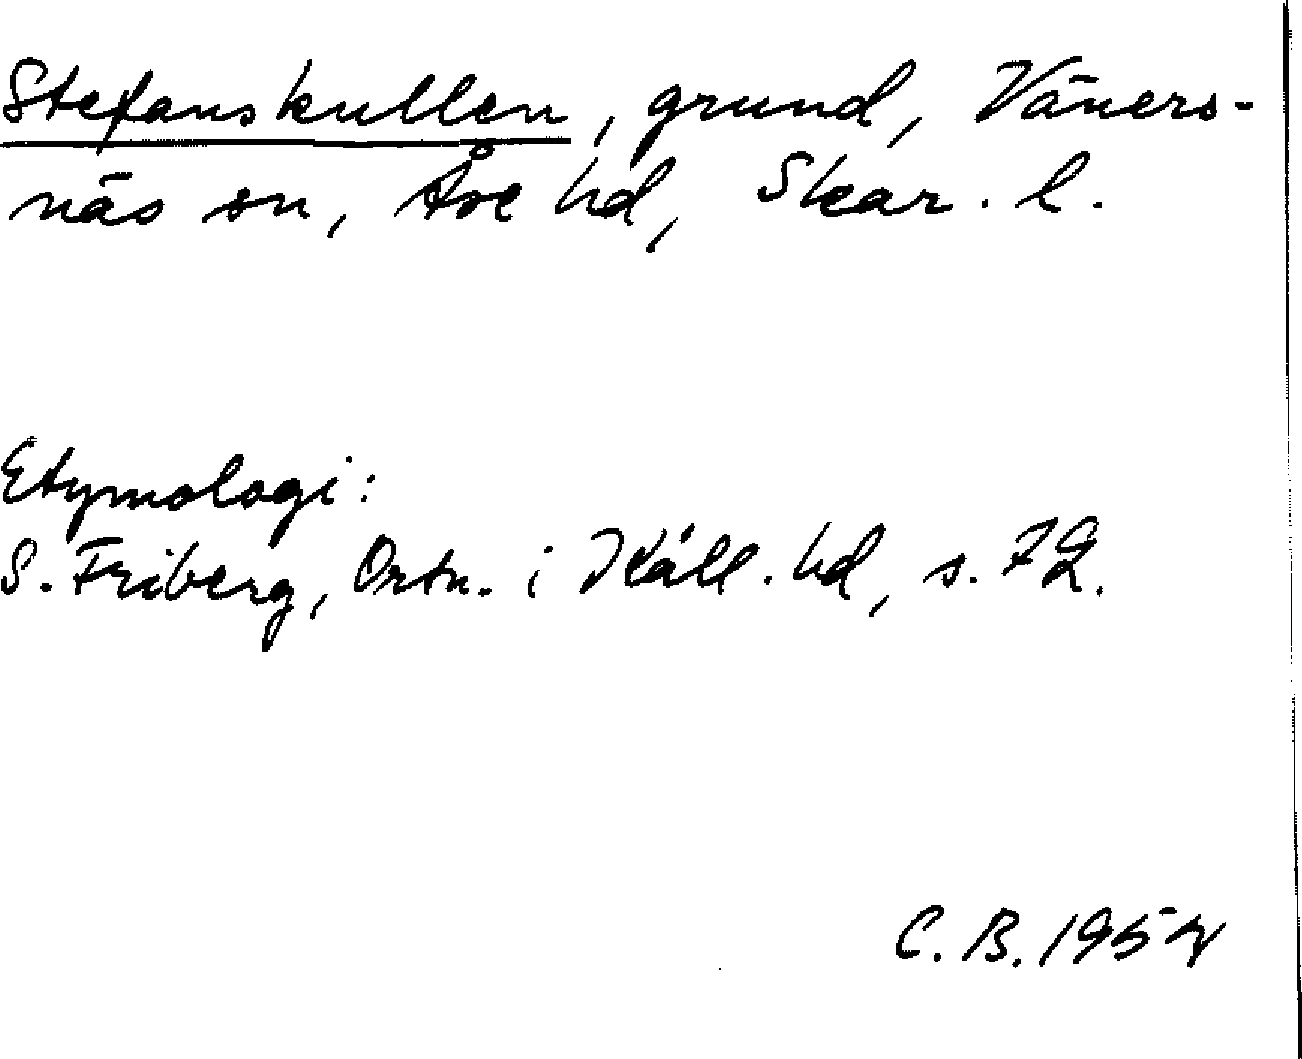 Stefanskullen, grund, Väners-
näs sn, Åse hd, Skar. l.
Etymologi:
S. Friberg, Ortn. i Kåll. hd, s. 72.
C. B. 1954